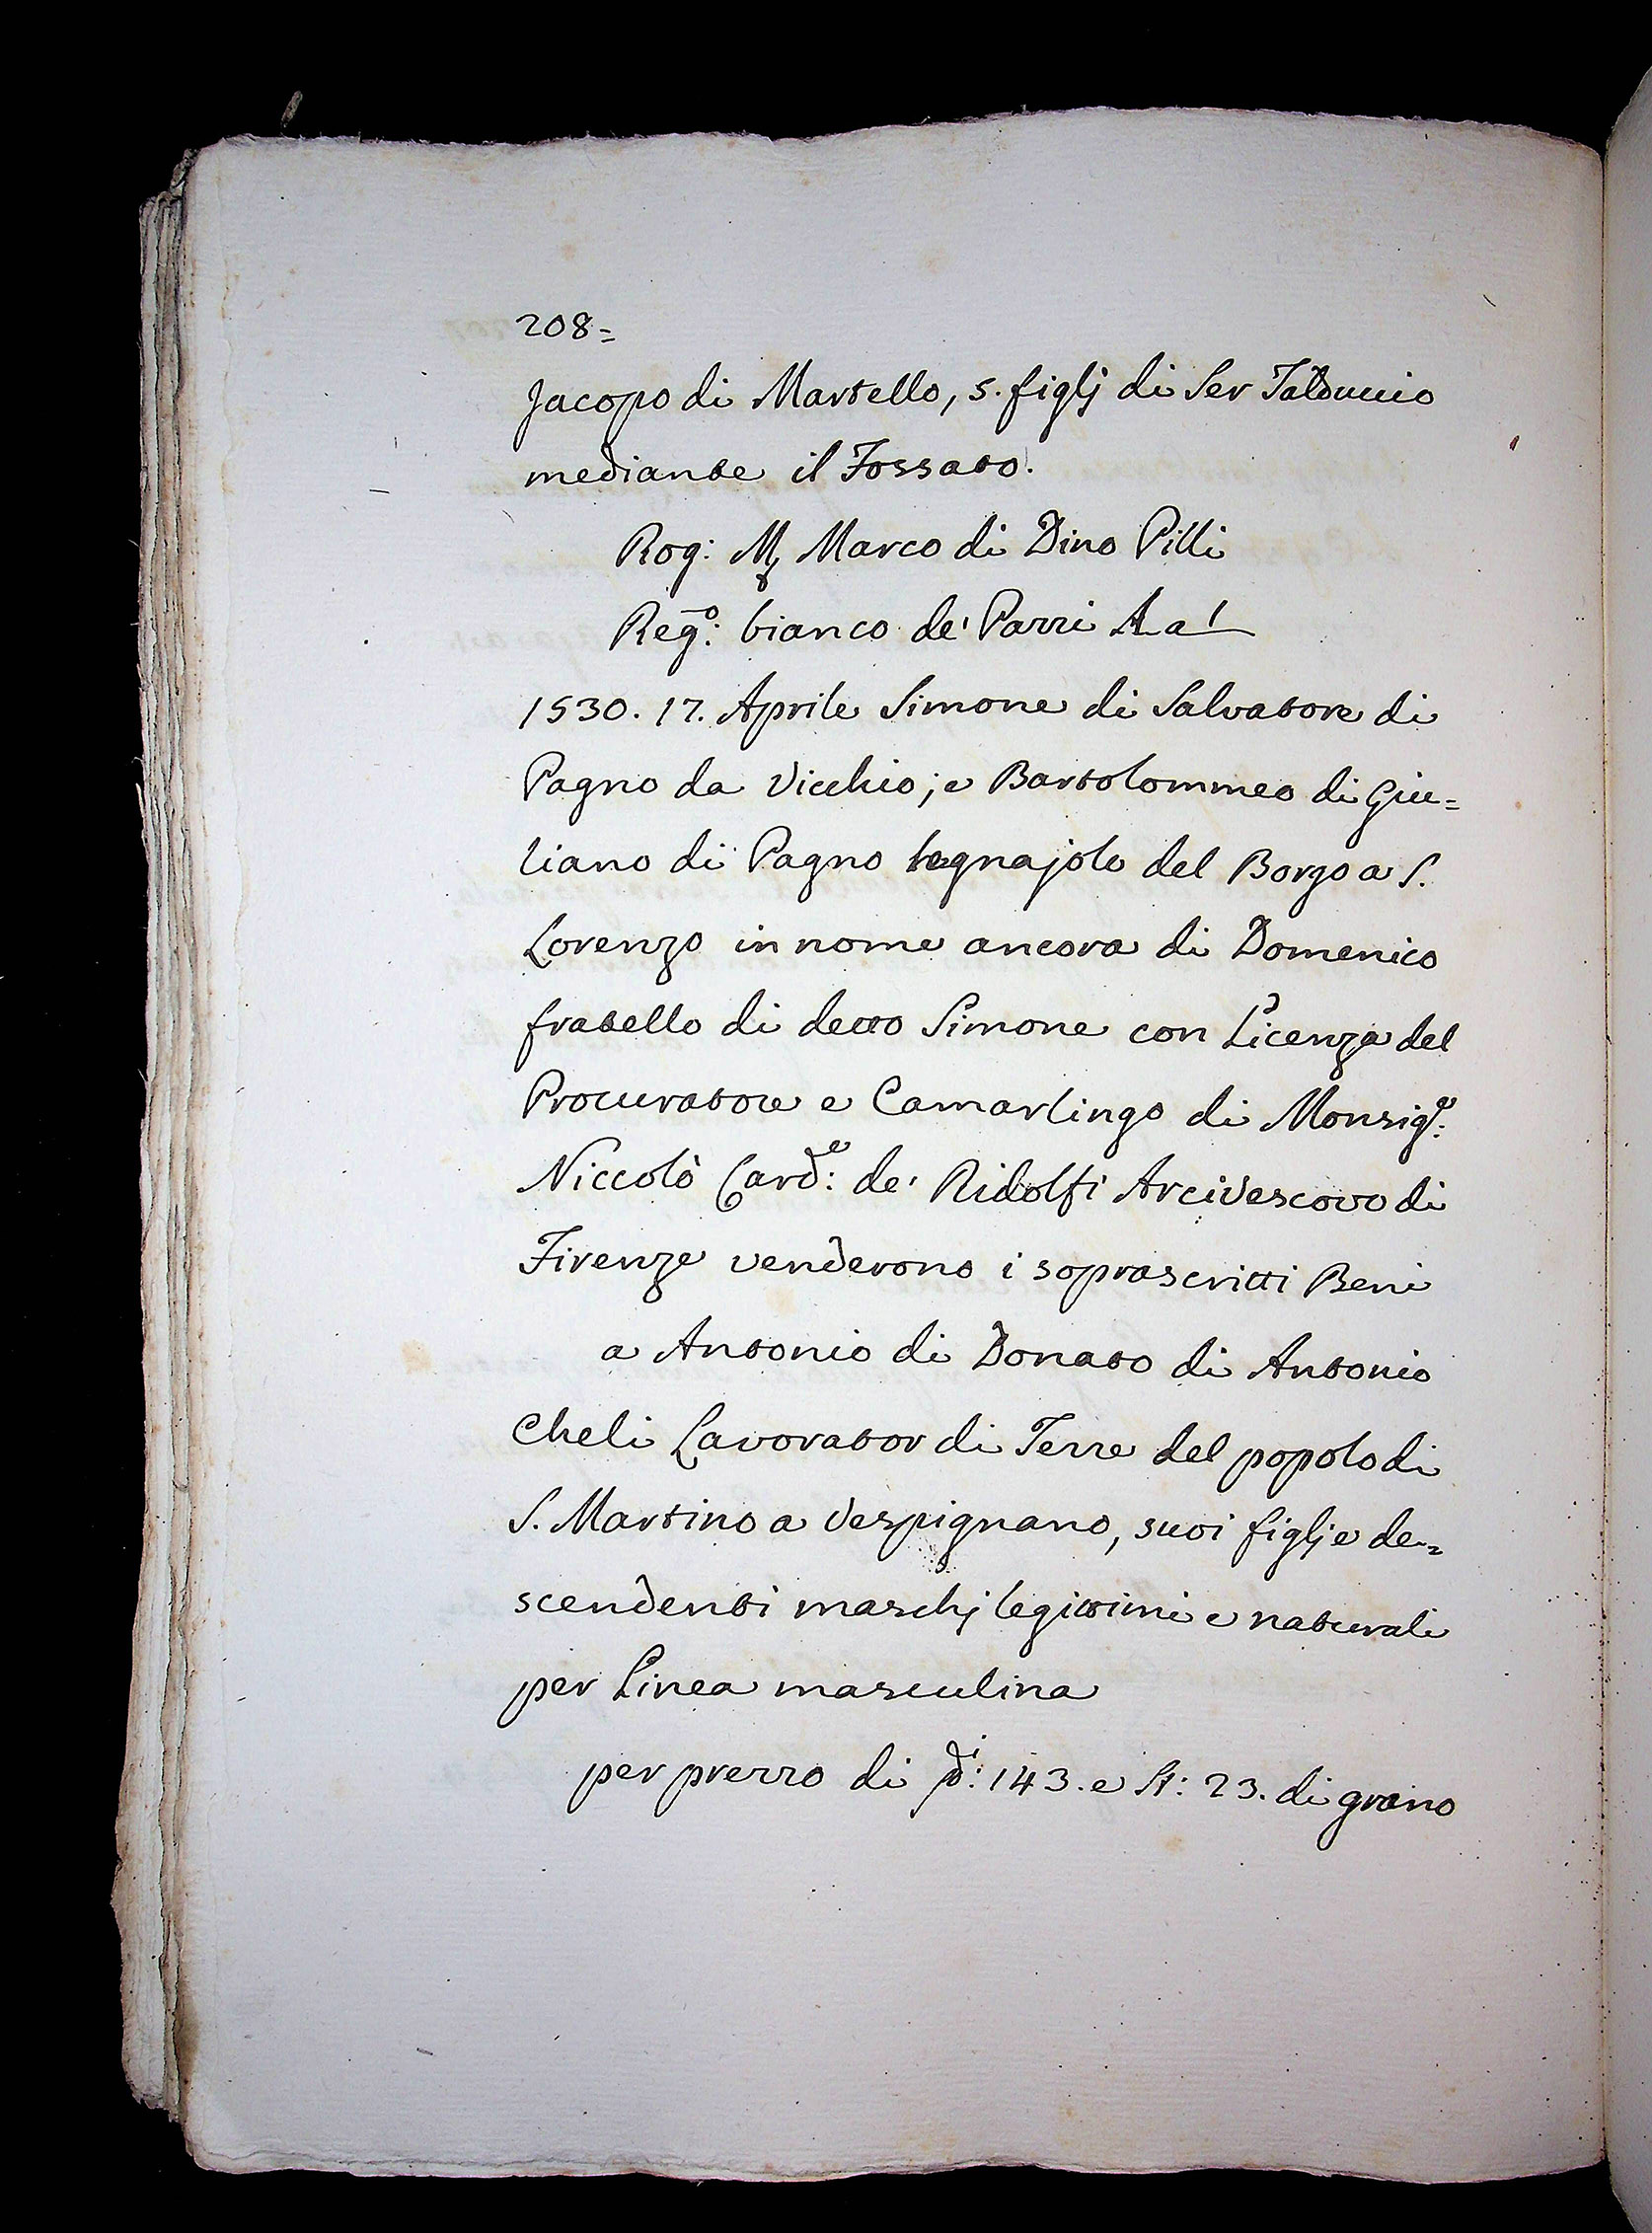 208=
Jacopo di Martello, 5. figlj di Ser Talduccio
mediante il Fossato.
Rog: Mr Marco di Dino Pilli
Rego: bianco de' Pazzi A a 1
1530. 17. Aprile Simone di Salvatore di
Pagno da Vicchio; e Bartolommeo di Giu=
liano di Pagno legnajolo del Borgo a S.
Lorenzo in nome ancora di Domenico
fratello di detto Simone con Licenza del
Procuratore e Camarlingo di Monsige:
Niccolò Carde: de' Ridolfi Arcivescovo di
Firenze venderono i soprascritti Beni
a Antonio di Donato di Antonio
Cheli Lavorator di Terre del popolo di
S. Martino a Vespignano, suoi figlj e de=
scendenti maschj legittimi e naturali
per Linea masculina
per prezzo di 143. e St: 23. di grano